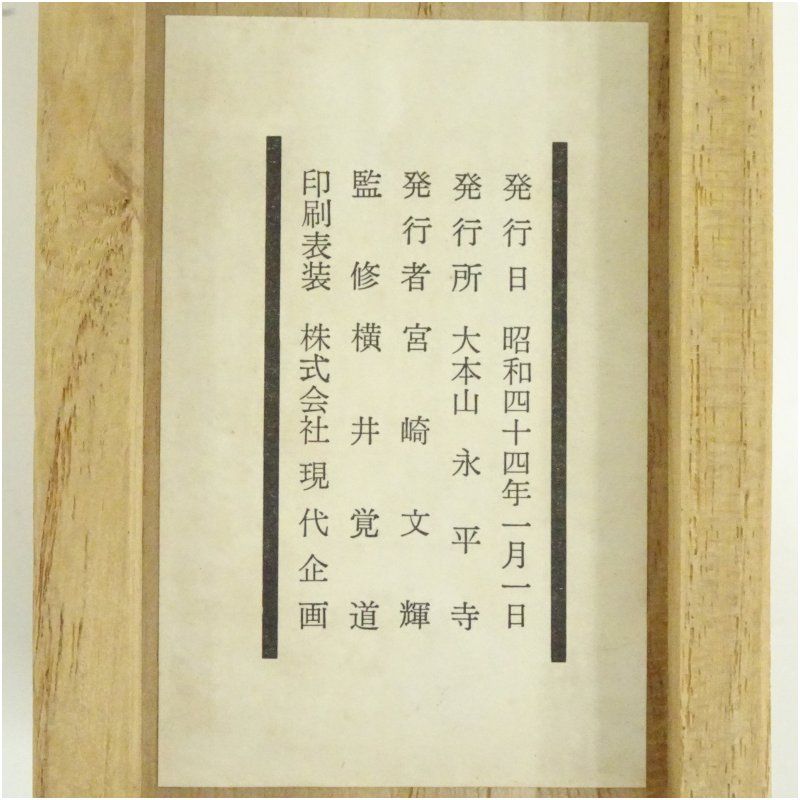 発行日 昭和四十四年一月一日
発行所 大本山 永平寺
発行者 宮崎文輝
監修 横井覚道
印刷表装 株式会社現代企画